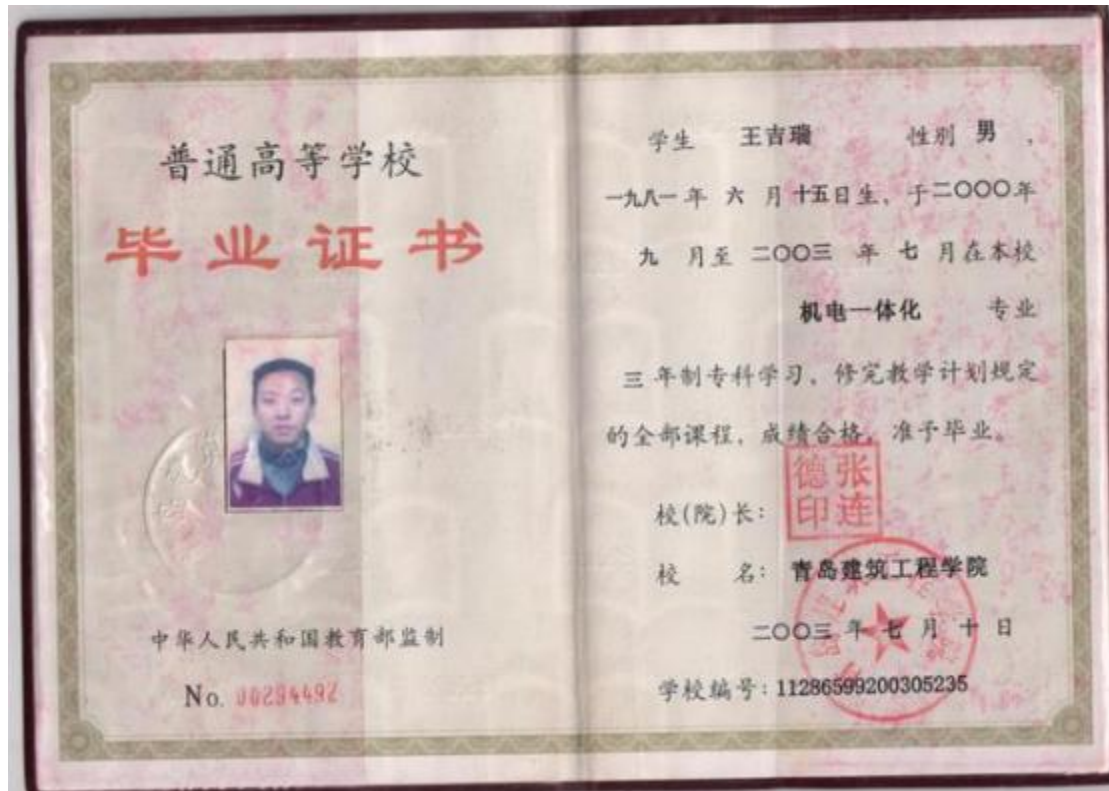 普通高等学校
毕业证书
中华人民共和国教育部监制
No. 00284492
学生 王吉瑞 性别 男 ,
一九八一年 六 月十五日生, 于二〇〇〇年
九 月至 二〇〇三 年 七 月在本校
机电一体化 专业
三 年制专科学习, 修完教学计划规定
的全部课程, 成绩合格, 准予毕业。
校(院)长:
张连
德印
校 名: 青岛建筑工程学院
二〇〇三年七月十日
学校编号: 11286599200305235